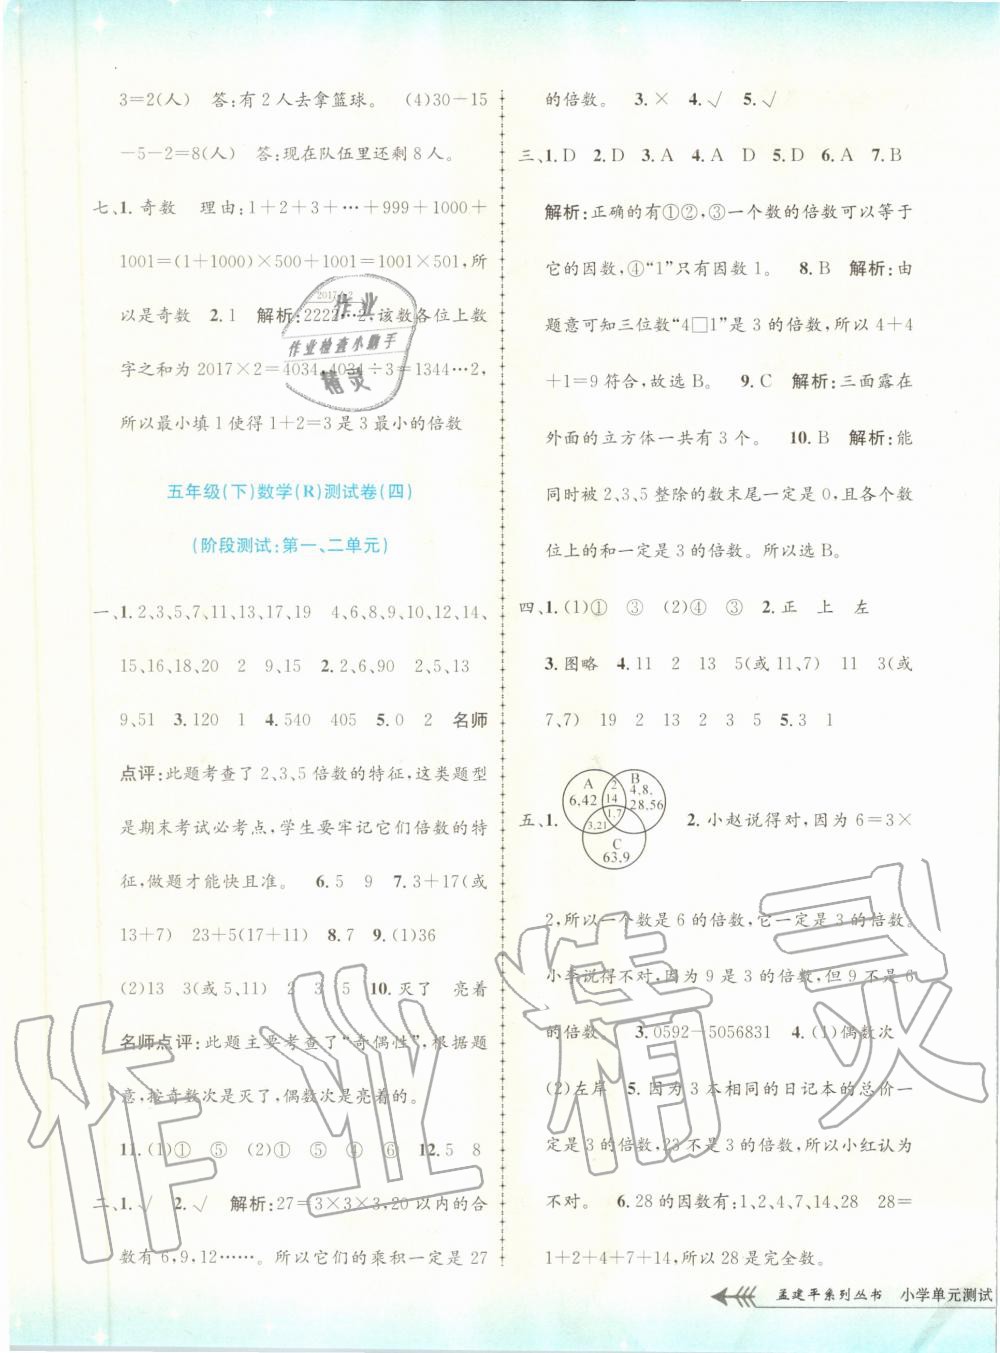 3=2(人)　答:有2人去拿篮球。　(4)30-15
-5-2=8(人)　答:现在队伍里还剩8人。
七、1.奇数　理由:1+2+3+…+999+1000+
1001=(1+1000)×500+1001=1001×501,所
以是奇数　2.1　解析:2222…2,该数各位上数
2017个2
字之和为2017×2=4034,4034÷3=1344…2,
所以最小填1使得1+2=3是3最小的倍数
五年级(下)数学(R)测试卷(四)
(阶段测试:第一、二单元)
一、1.2,3,5,7,11,13,17,19　4,6,8,9,10,12,14、
15,16,18,20　2　9,15　2.2,6,90　2,5,13
9,51　3.120　1　4.540　405　5.0　2　名师
点评:此题考查了2、3、5倍数的特征,这类题型
是期末考试必考点,学生要牢记它们倍数的特
征,做题才能快且准。　6.5　9　7.3+17(或
13+7)　23+5(17+11)　8.7　9.(1)36
(2)13　3(或5、11)　2　3　5　10.灭了　亮着
名师点评:此题主要考查了“奇偶性”,根据题
意,按奇数次是灭了,偶数次是亮着的。
11.(1)①　⑤　(2)①　⑤　④　⑥　12.5　8
二、1.√　2.√　解析:27=3×3×3,20以内的合
数有6,9,12……。所以它们的乘积一定是27
的倍数。　3.×　4.√　5.√
三、1.D　2.D　3.A　4.A　D　5.D　6.A　7.B
解析:正确的有①②,③一个数的倍数可以等于
它的因数,④“1”只有因数1。　8.B　解析:由
题意可知三位数“4□1”是3的倍数,所以4+4
+1=9符合,故选B。　9.C　解析:三面露在
外面的立方体一共有3个。　10.B　解析:能
同时被2、3、5整除的数末尾一定是0,且各个数
位上的和一定是3的倍数。所以选B。
四、1.(1)①　③　(2)④　③　2.正　上　左
3.图略　4.11　2　13　5(或11、7)　11　3(或
7、7)　19　2　13　2　3　5　5.3　1
A　B　C
6,42　2　14　4,8,　28,56
1,7　3,21　63,9
五、1.　2.小赵说得对,因为6=3×
2,所以一个数是6的倍数,它一定是3的倍数。
小李说得不对,因为9是3的倍数,但9不是6
的倍数　3.0592-5056831　4.(1)偶数次
(2)左岸　5.因为3本相同的日记本的总价一
定是3的倍数,23不是3的倍数,所以小红认为
不对。　6.28的因数有:1,2,4,7,14,28　28=
1+2+4+7+14,所以28是完全数。
孟建平系列丛书　小学单元测试
作业
作业检查小助手
精灵
作业精灵